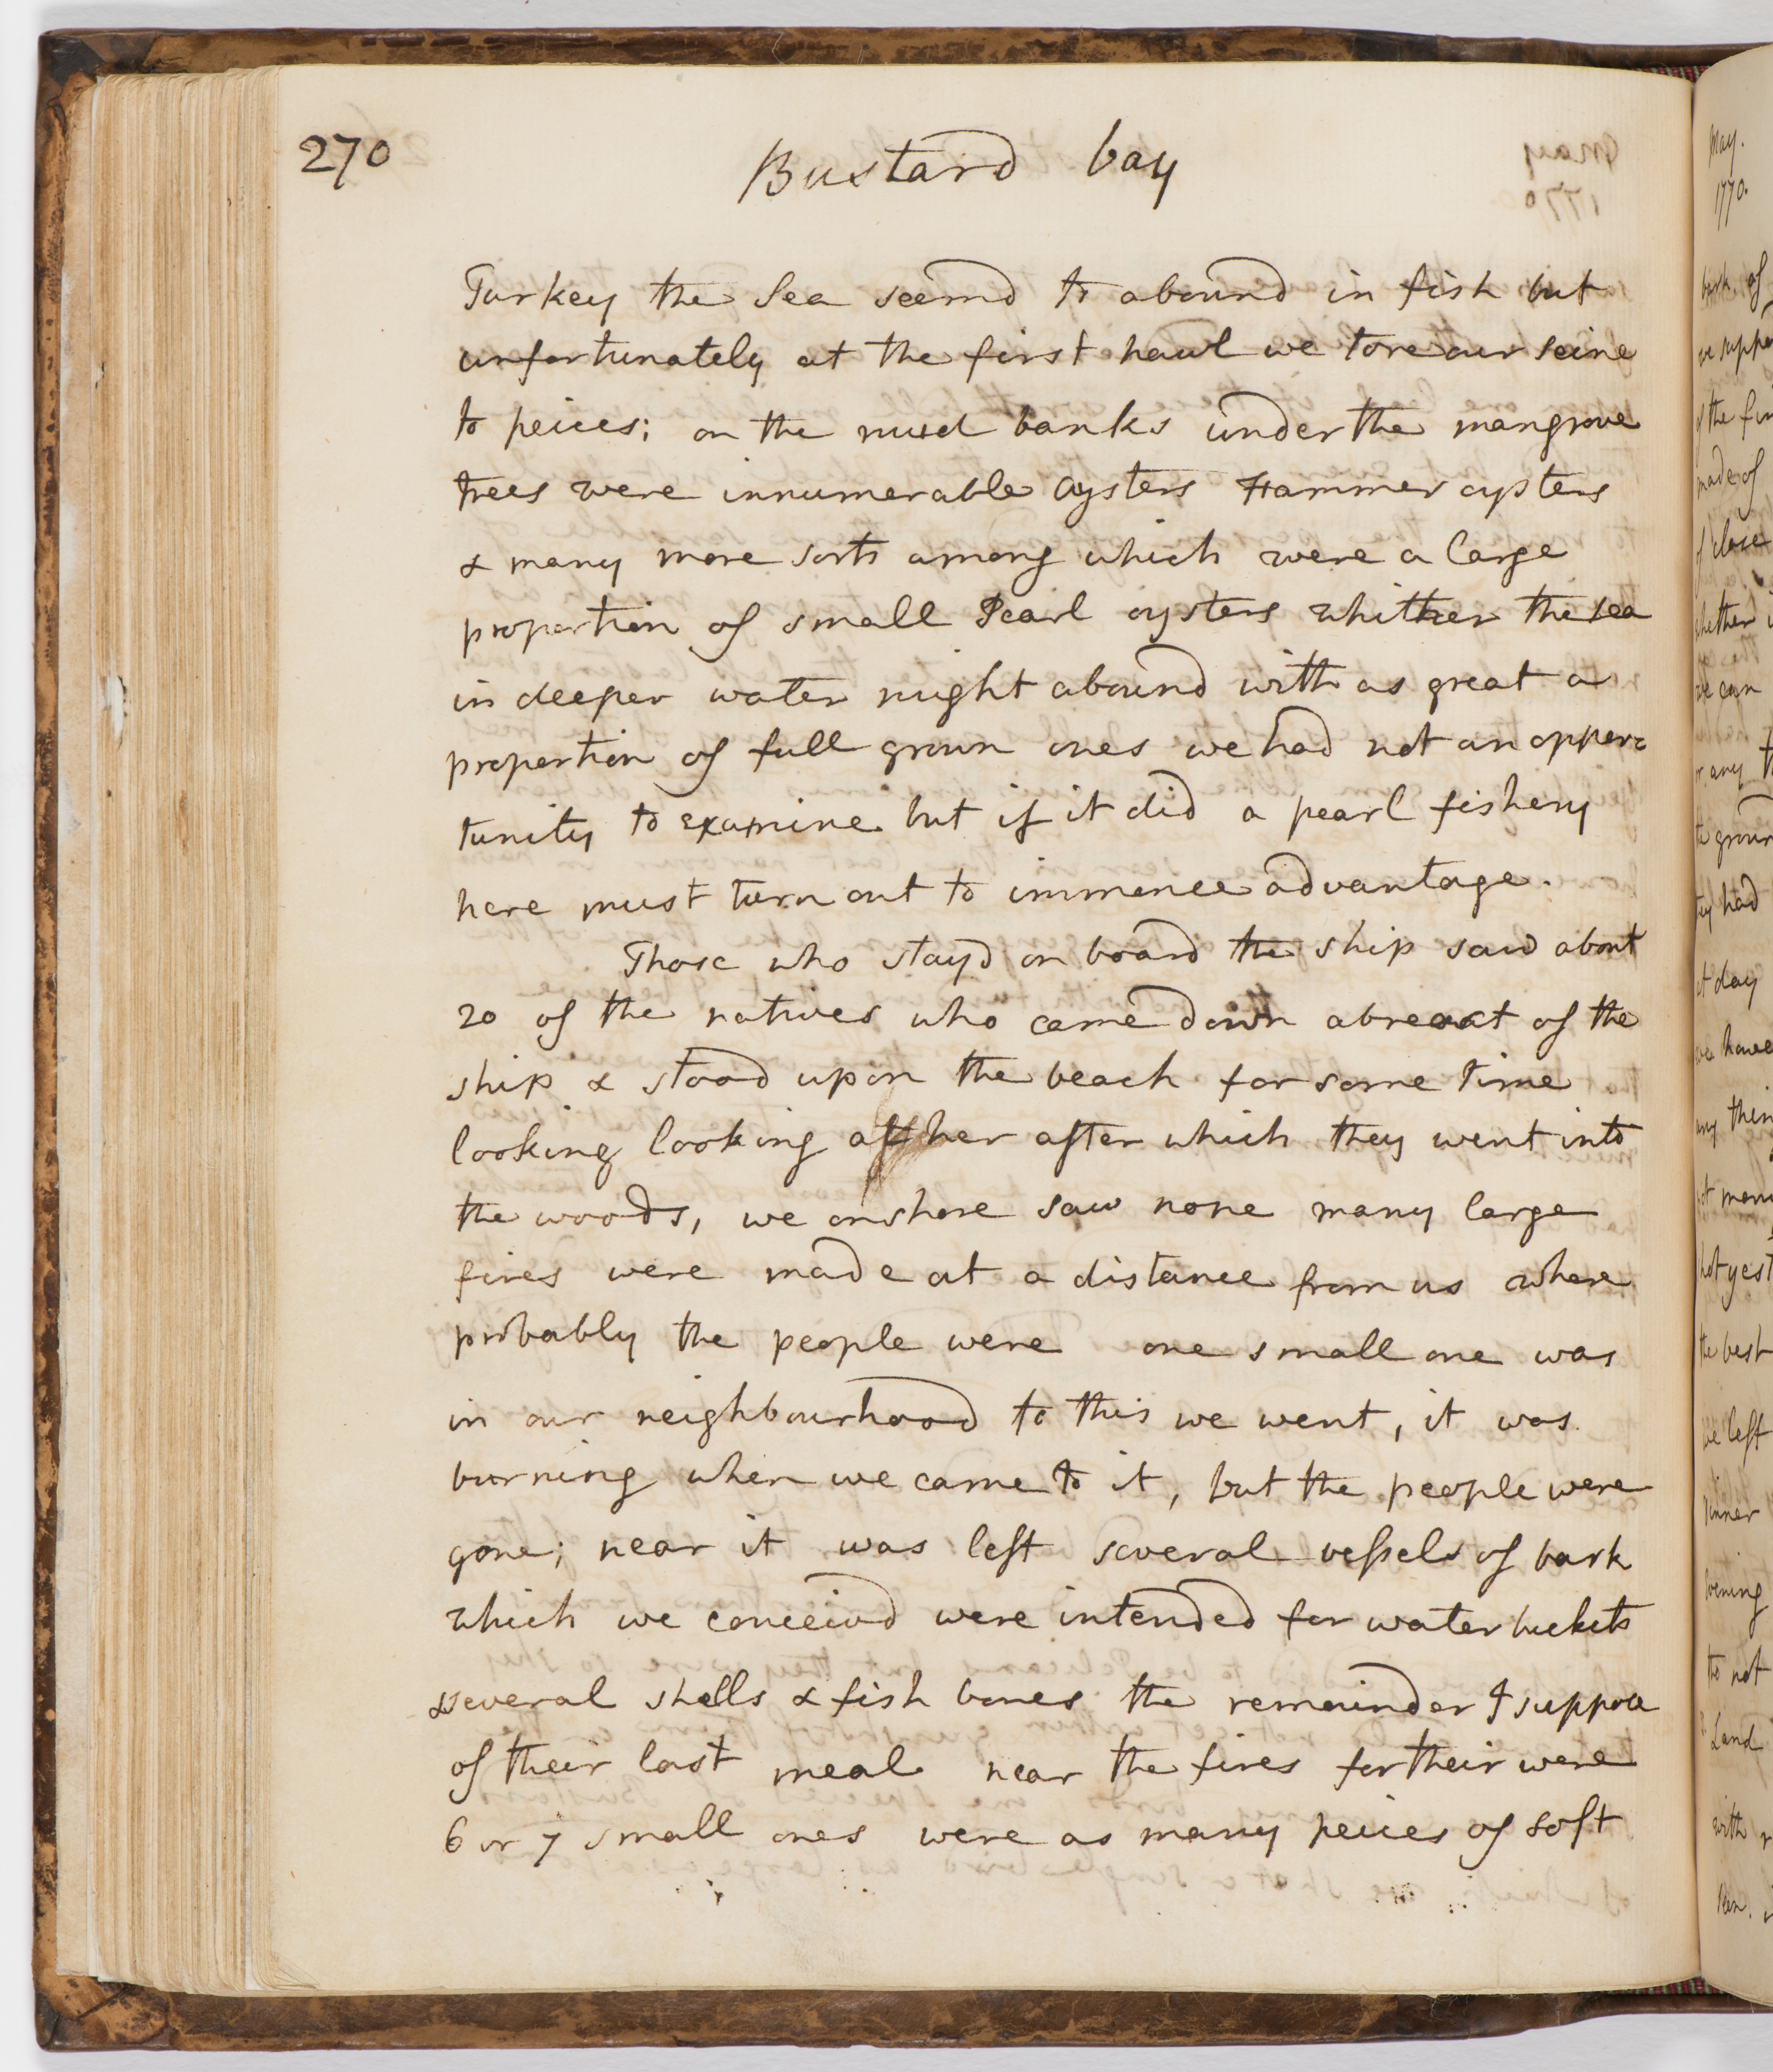 270
Bustard bay
Turkey the Sea seemd to abound in fish but
unfortunately at the first hawl we tore our seine
to peices; on the mud banks under the mangrove
trees were innumerable Oysters Hammer oysters
& many more sorts among which were a large
proportion of small Pearl oysters whither the sea
in deeper water might abound with as great a
proportion of full grown ones we had not an oppor=
tunity to examine but if it did a pearl fishery
here must turn out to immence advantage.
Those who stayd on board the ship saw about
20 of the natives who came down abreast of the
ship & stood upon the beach for some time
looking looking at her after which they went into
the woods, we onshore saw none many large
fires were made at a distance from us where
probably the people were one small one was
in our neighbourhood to this we went, it was
burning when we came to it, but the people were
gone; near it was left several vessels of bark
which we conceivd were intended for water buckets
& several shells & fish bones the remainder I suppose
of their last meal near the fires for their were
6 or 7 small ones were as many peices of soft
May.
1770.
bark of
we suppo
of the fir
made of
of close
whether i
we can
or any t
the groun
they had
at day
we have
any thin
not many
hot yest
the best
we left
dinner
evening
to not
Land
with